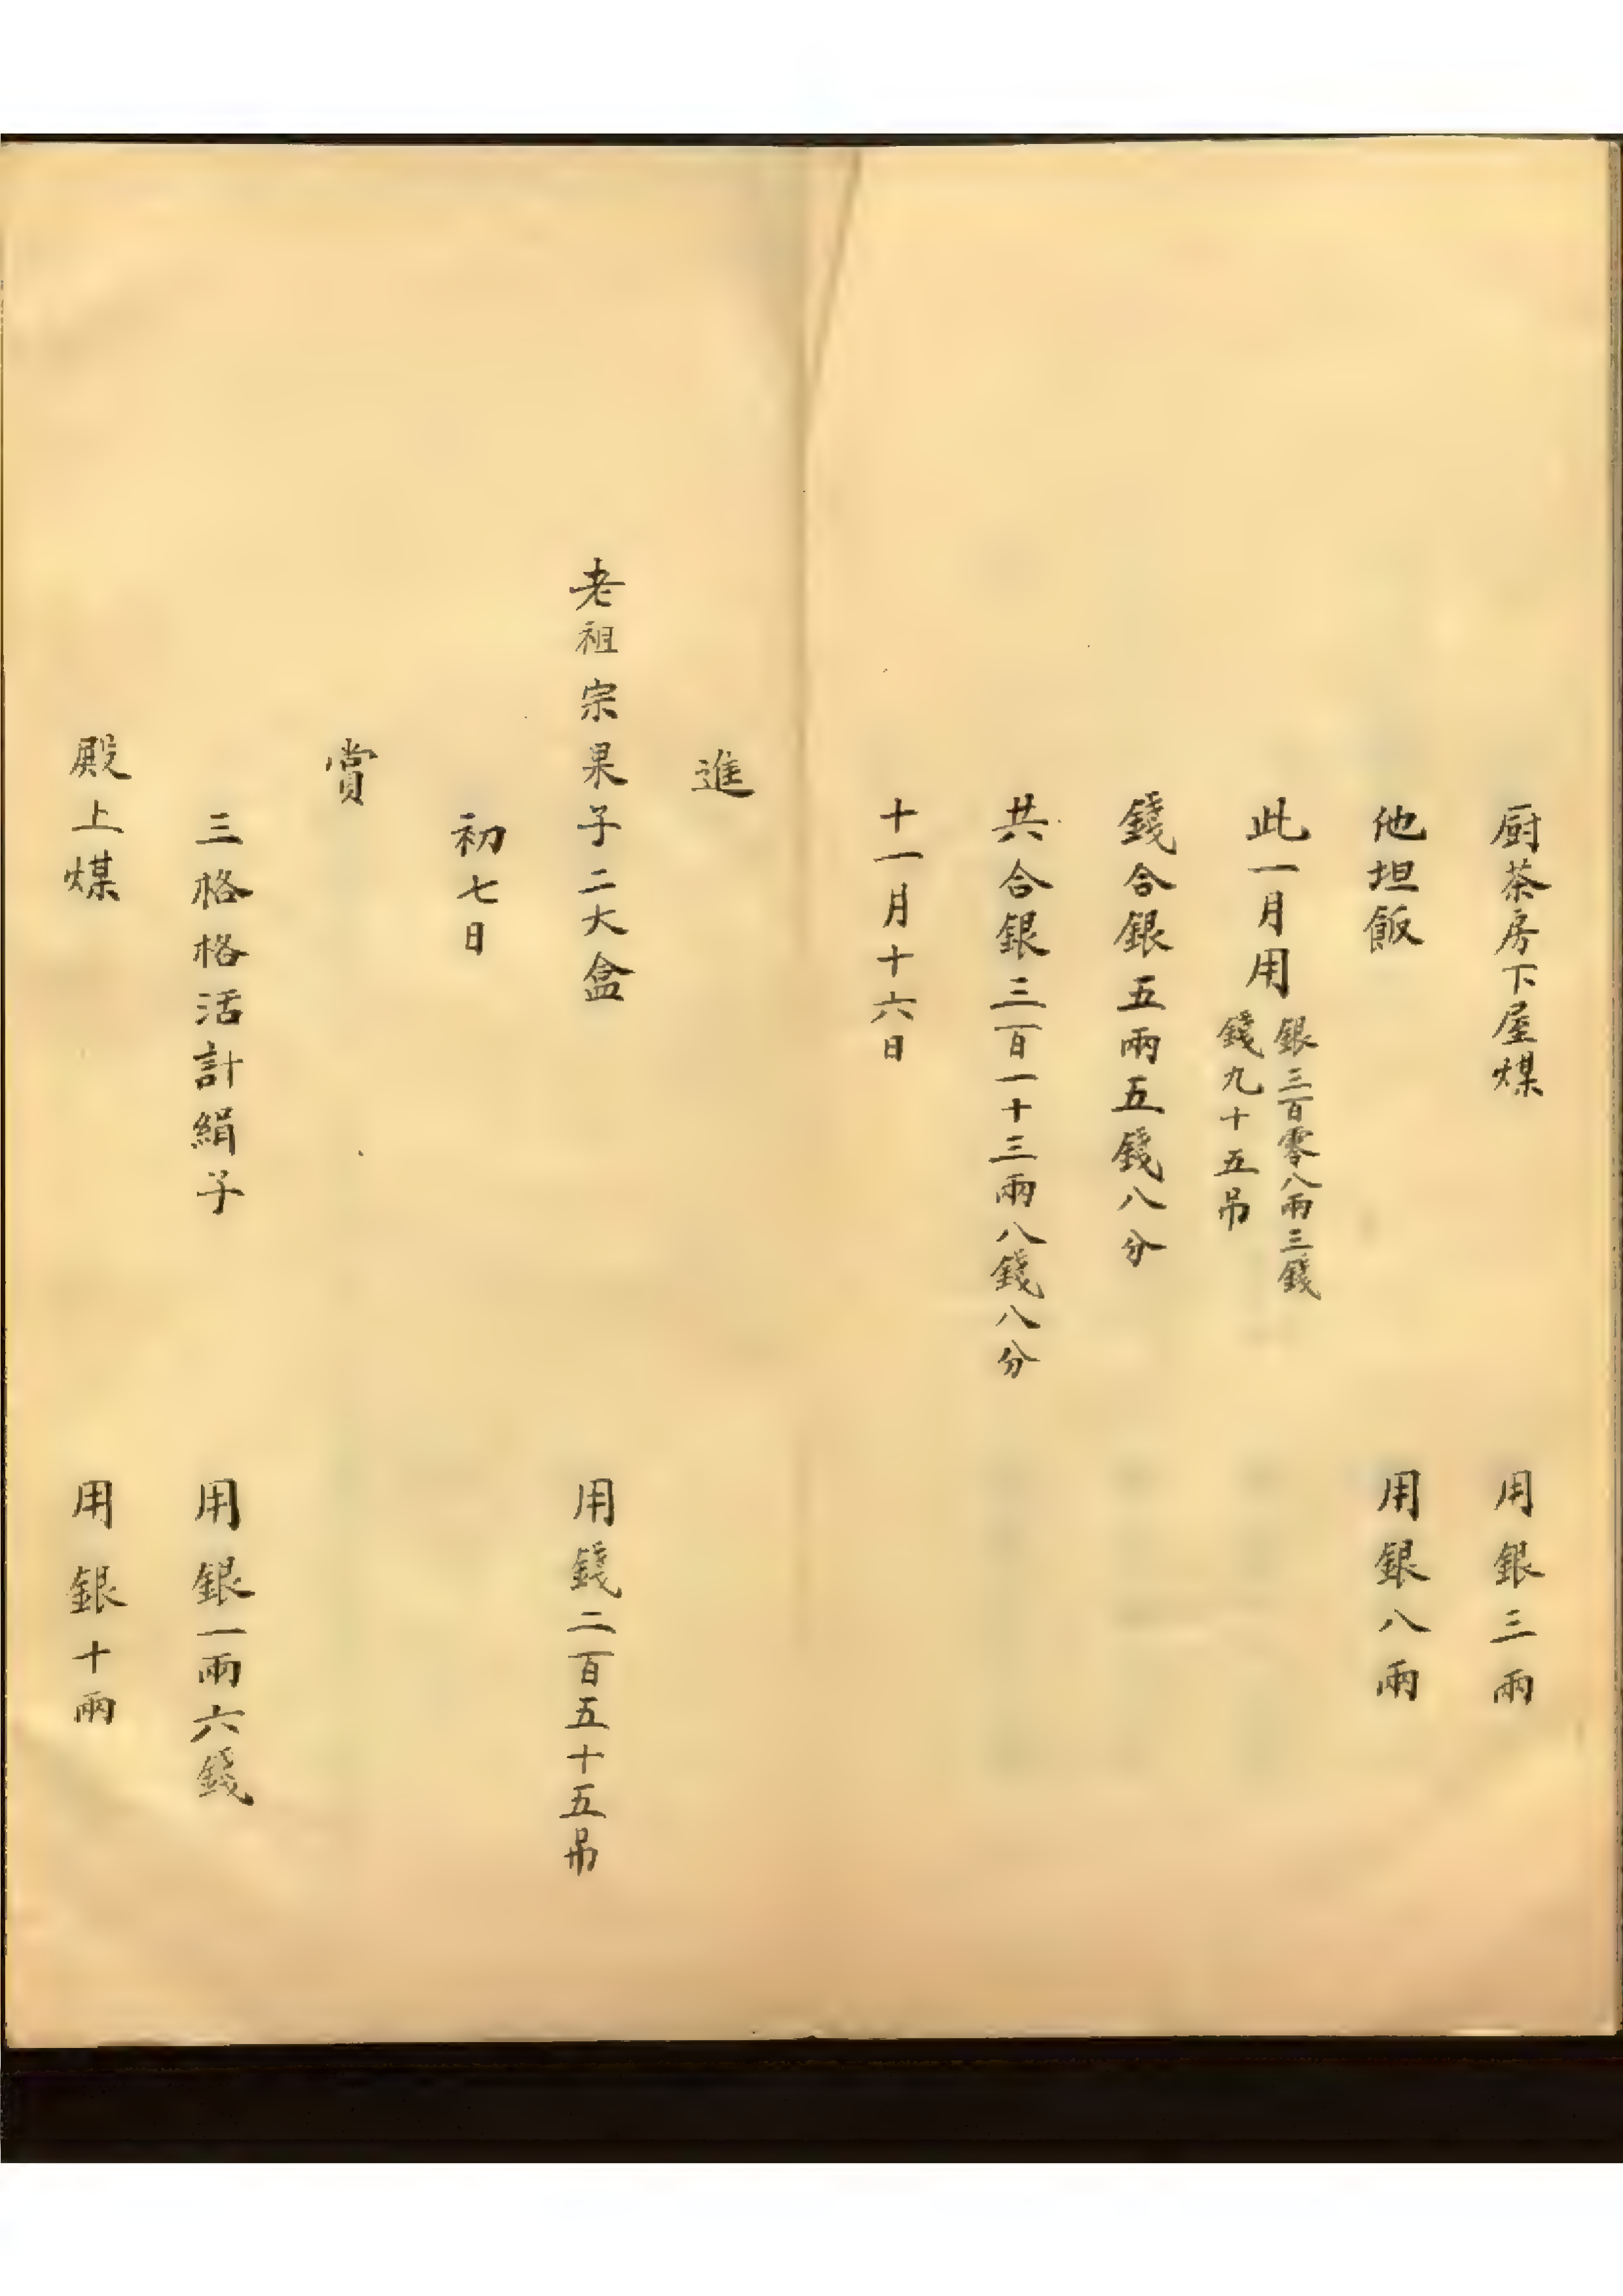 厨茶房下屋煤 用銀三兩
他坦飯 用銀八兩
此一月用 銀三百零八兩三錢
錢九十五吊
錢合銀五兩五錢八分
共合銀三百一十三兩八錢八分
十一月十六日
進
老祖宗果子二大盒 用錢二百五十五吊
初七日
賞
三格格活計絹子 用銀一兩六錢
殿上煤 用銀十兩